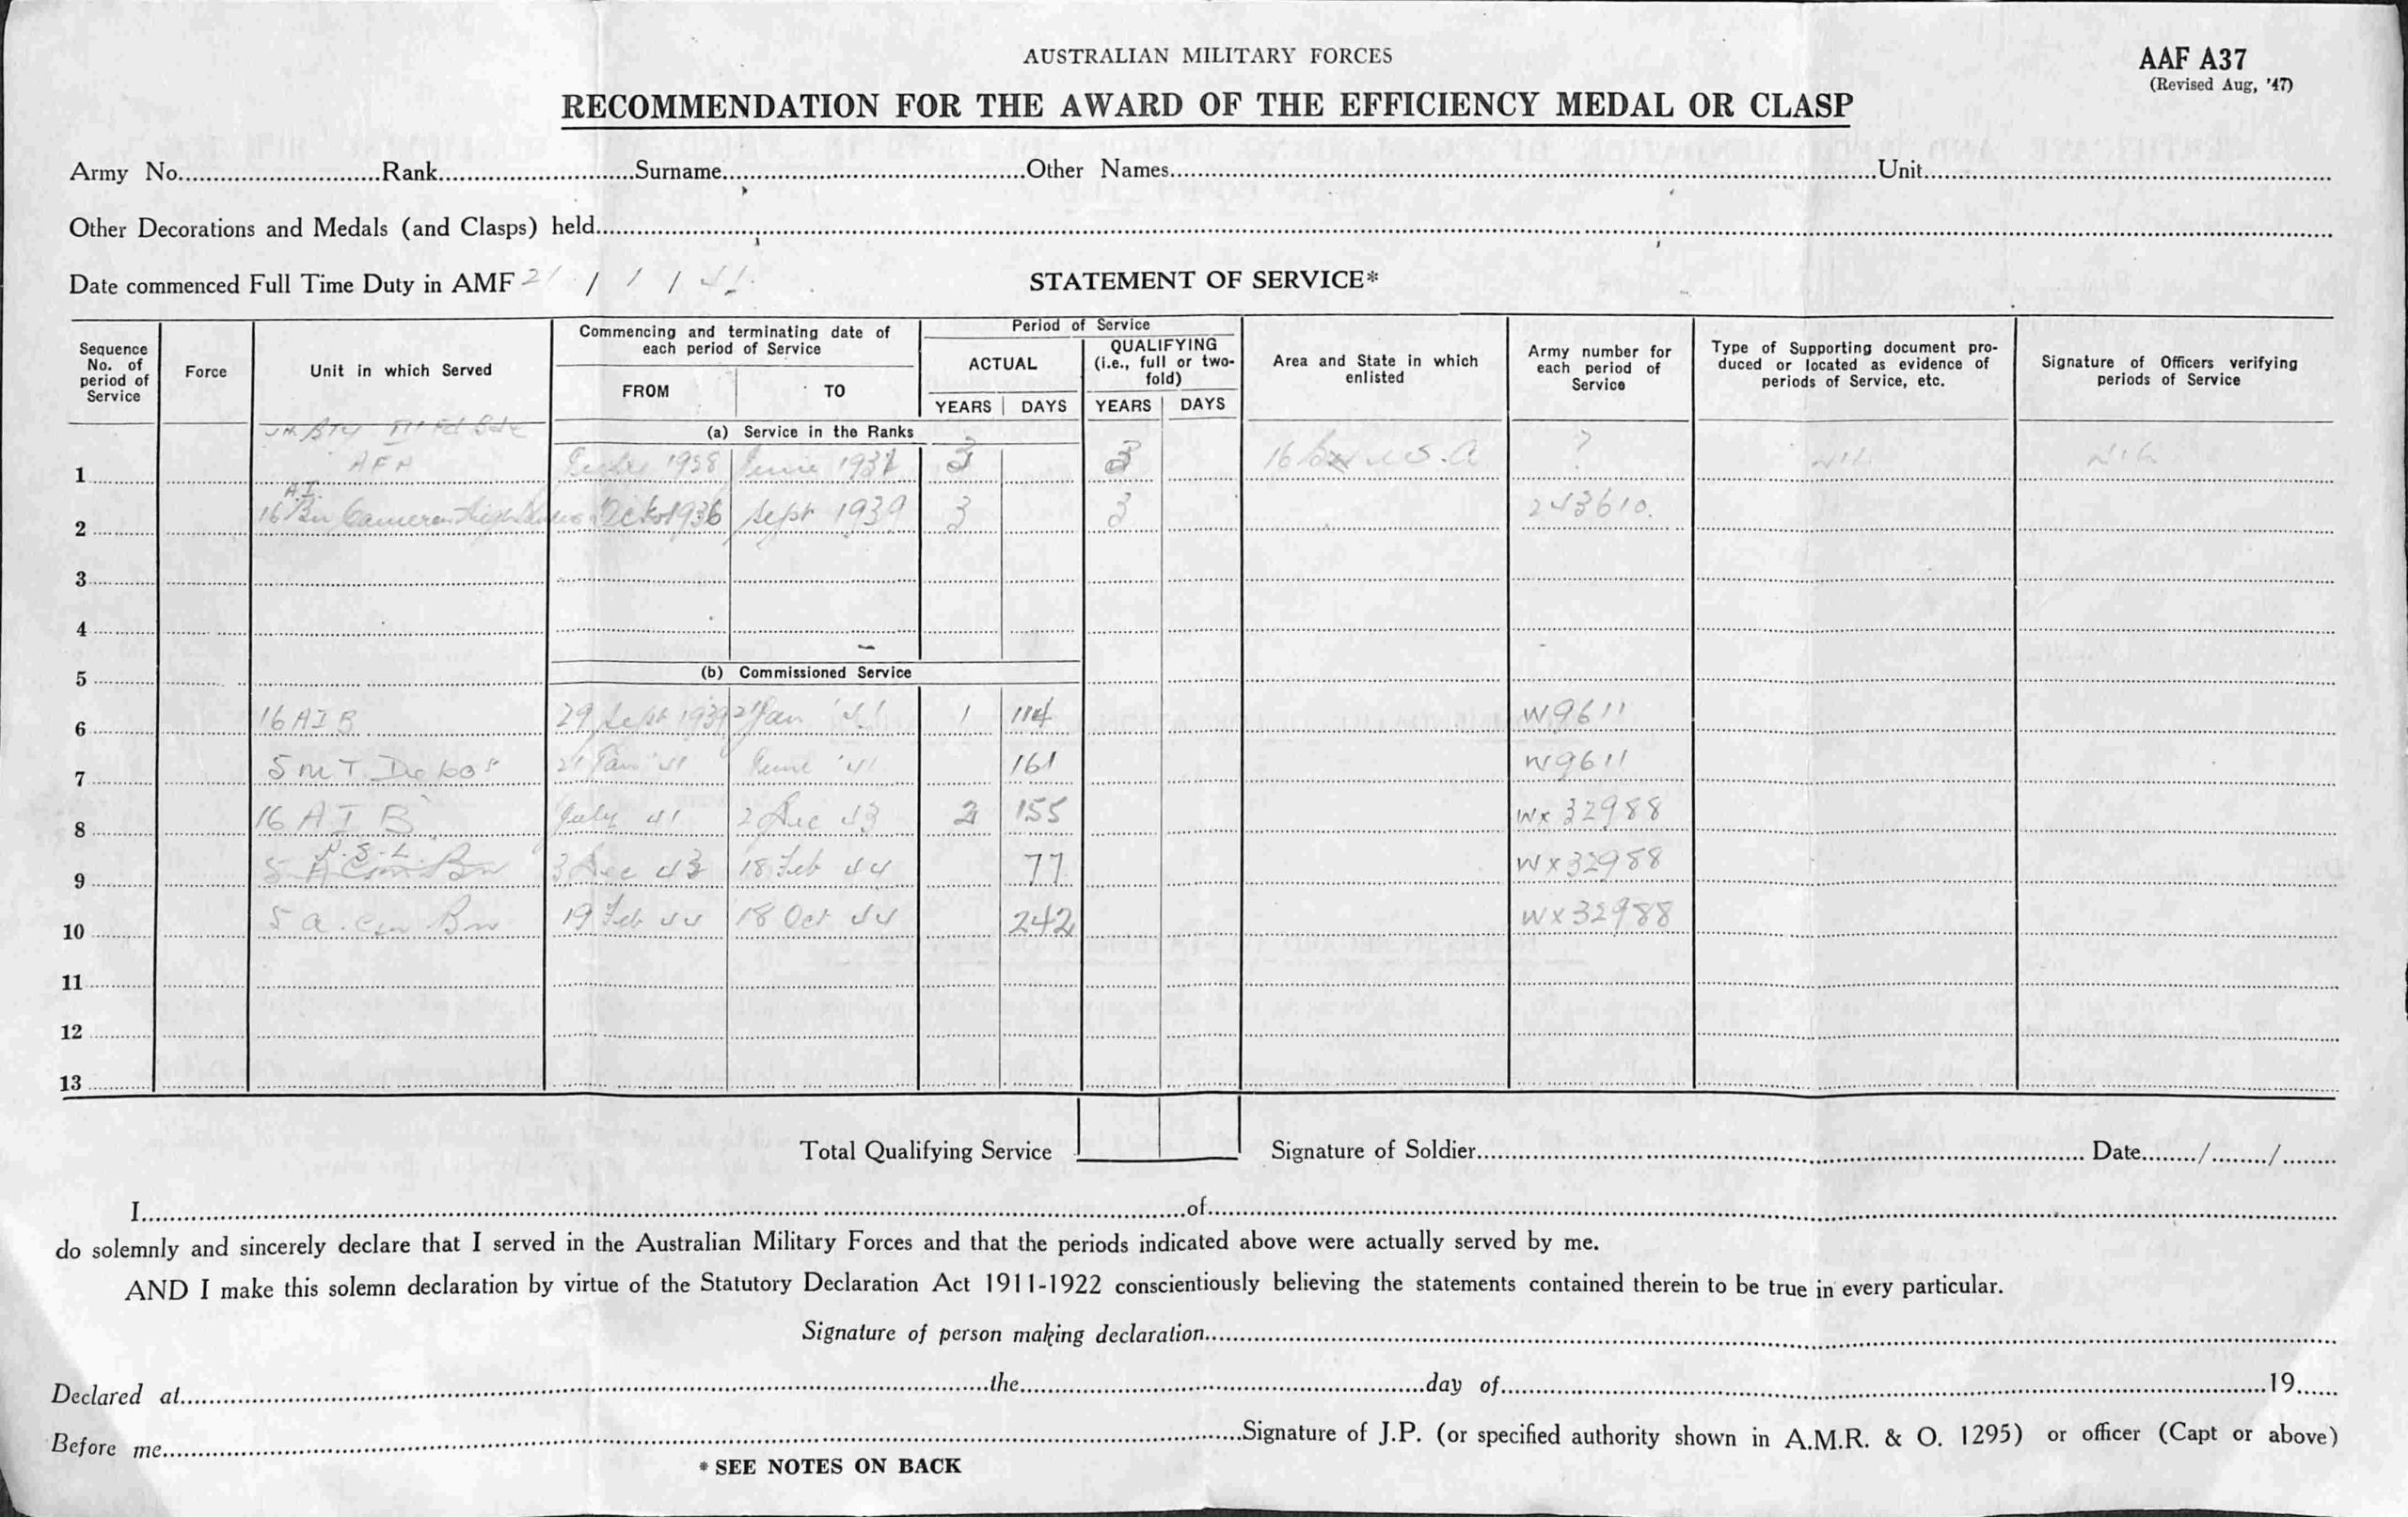 AUSTRALIAN MILITARY FORCES
AAF A37
(Revised Aug, '47)
RECOMMENDATION FOR THE AWARD OF THE EFFICIENCY MEDAL OR CLASP
Army No. Rank Surname Other Names Unit
Other Decorations and Medals (and Clasps) held
Date commenced Full Time Duty in AMF 21 / 1 / 41.
STATEMENT OF SERVICE*
Sequence No. of period of Service
Force
Unit in which Served
Commencing and terminating date of each period of Service
FROM
TO
Period of Service
ACTUAL
QUALIFYING (i.e., full or two-fold)
YEARS DAYS YEARS DAYS
Area and State in which enlisted
Army number for each period of Service
Type of Supporting document produced or located as evidence of periods of Service, etc.
Signature of Officers verifying periods of Service
(a) Service in the Ranks
1 AFA 1928 June 1931 3 3 16 ? NIL NIL
2 16 Bn Cameron Highlanders Octo 1936 Sept 1939 3 3 243610.
3
4
(b) Commissioned Service
5
6 16 AIB 29 Sept 1939 21 Jan '41 1 114 W9611
7 5 MT 21 Jan '41 June '41 161 W9611
8 16 AIB July 41 2 Dec 43 2 155 WX 32988
9 3 Dec 43 18 Feb 44 77 WX32988
10 5 a. Bn 19 Feb 44 18 Oct 44 242 WX32988
11
12
13
Total Qualifying Service
Signature of Soldier Date / /
I of
do solemnly and sincerely declare that I served in the Australian Military Forces and that the periods indicated above were actually served by me.
AND I make this solemn declaration by virtue of the Statutory Declaration Act 1911-1922 conscientiously believing the statements contained therein to be true in every particular.
Signature of person making declaration
Declared at the day of 19
Before me Signature of J.P. (or specified authority shown in A.M.R. & O. 1295) or officer (Capt or above)
* SEE NOTES ON BACK